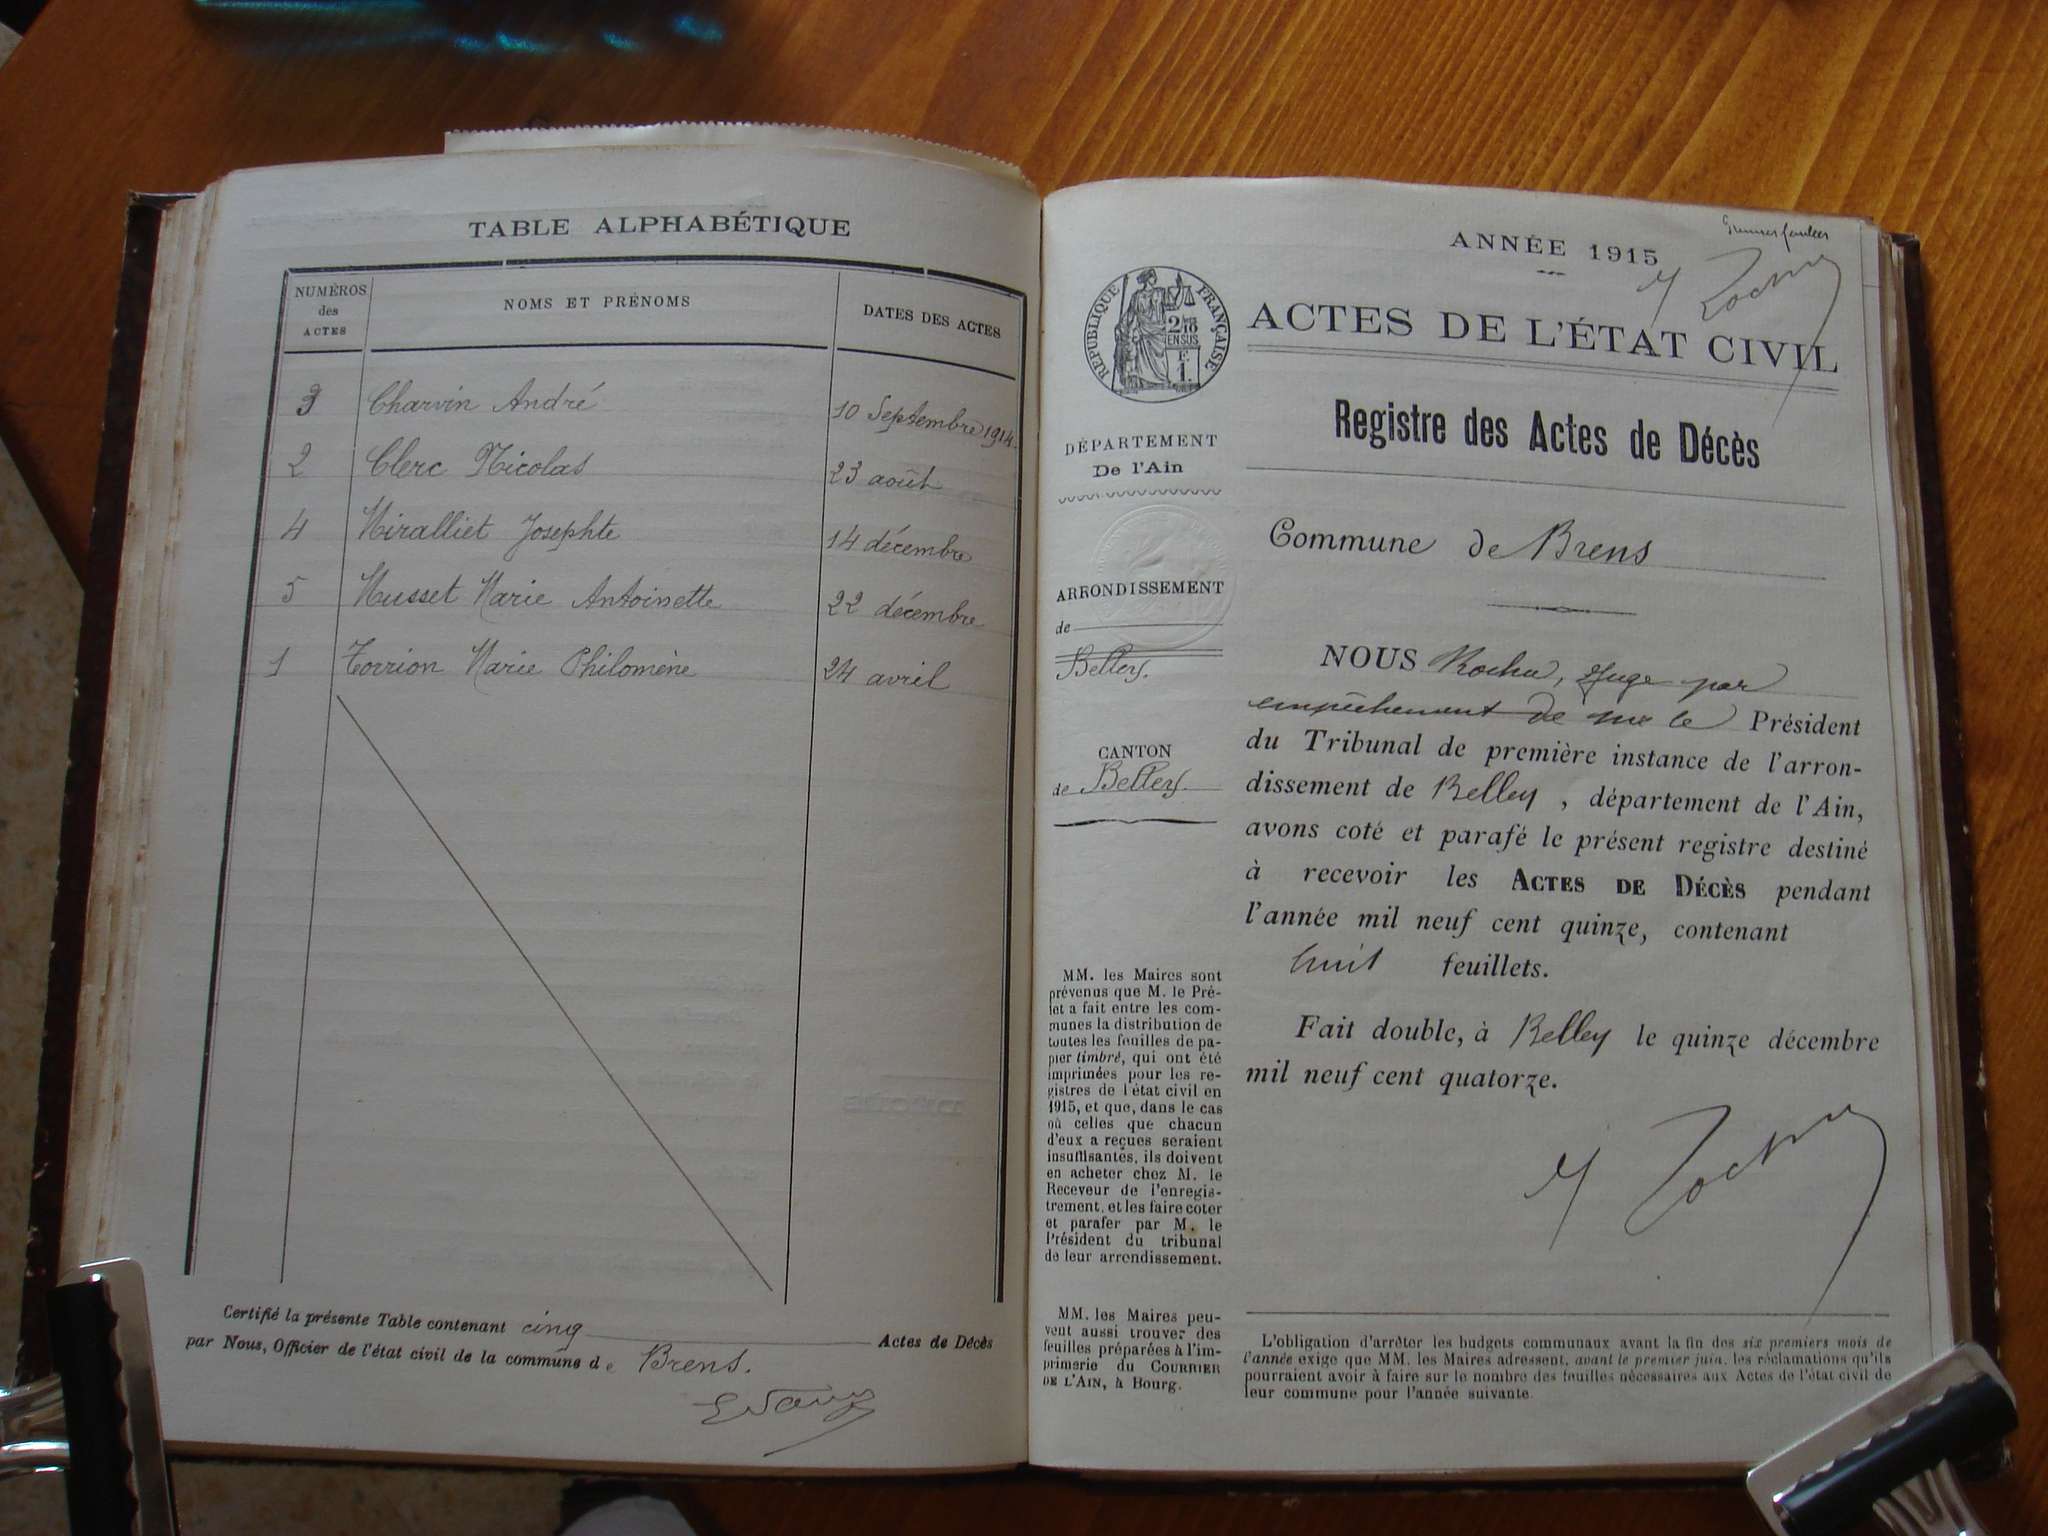 TABLE ALPHABÉTIQUE
NUMÉROS des ACTES
NOMS ET PRÉNOMS
DATES DES ACTES
3 Charvin André 10 Septembre 1914
2 Clerc Nicolas 23 août
4 Miralliet Josephte 14 décembre
5 Musset Marie Antoinette 22 décembre
1 Torrion Marie Philomène 24 avril
Certifié la présente Table contenant cinq Actes de Décès
par Nous, Officier de l'état civil de la commune de Brens.
ANNÉE 1915
RÉPUBLIQUE FRANÇAISE
2/10 EN SUS
F. 1.
ACTES DE L'ÉTAT CIVIL
Registre des Actes de Décès
Commune de Brens
DÉPARTEMENT
De l'Ain
ARRONDISSEMENT
de
Belley.
CANTON
de Belley.
MM. les Maires sont
prévenus que M. le Pré-
fet a fait entre les com-
munes la distribution de
toutes les feuilles de pa-
pier timbré, qui ont été
imprimées pour les re-
gistres de l'état civil en
1915, et que, dans le cas
où celles que chacun
d'eux a reçues seraient
insuffisantes, ils doivent
en acheter chez M. le
Receveur de l'enregis-
trement, et les faire coter
et parafer par M. le
Président du tribunal
de leur arrondissement.
MM. les Maires peu-
vent aussi trouver des
feuilles préparées à l'im-
primerie du COURRIER
DE L'AIN, à Bourg.
NOUS Juge par
empêchement de Mr le Président
du Tribunal de première instance de l'arron-
dissement de Belley, département de l'Ain,
avons coté et parafé le présent registre destiné
à recevoir les ACTES DE DÉCÈS pendant
l'année mil neuf cent quinze, contenant
huit feuillets.
Fait double, à Belley le quinze décembre
mil neuf cent quatorze.
L'obligation d'arrêter les budgets communaux avant la fin des six premiers mois de
l'année exige que MM. les Maires adressent, avant le premier juin, les réclamations qu'ils
pourraient avoir à faire sur le nombre des feuilles nécessaires aux Actes de l'état civil de
leur commune pour l'année suivante.